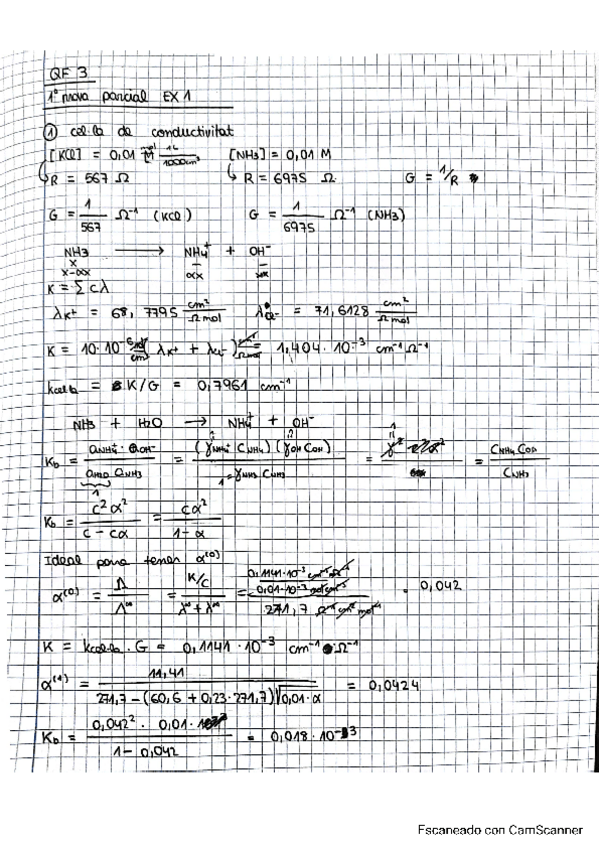 QF 3
1ª prova parcial EX 1
① cel·la de conductivitat
[KCl] = 0,01 M mol 1L / 1000cm³ [NH3] = 0,01 M
↳ R = 567 Ω ↳ R = 6975 Ω G = 1/R
G = 1/567 Ω⁻¹ (KCl) G = 1/6975 Ω⁻¹ (NH3)
NH3 → NH4⁺ + OH⁻
x – –
x-αx αx
K = Σcλ
λK⁺ = 68,7795 cm²/Ωmol λCl⁻ = 71,6128 cm²/Ωmol
K = 10·10⁻⁶ (λK⁺ + λCl⁻) = 1,404·10⁻³ cm⁻¹Ω⁻¹
kcel·la = K/G = 0,7961 cm⁻¹
NH3 + H2O → NH4⁺ + OH⁻
Kb = aNH4⁺ · aOH⁻ / aH2O aNH3 = (γNH4⁺ CNH4)(γOH COH) / 1=γNH3 CNH3 = γ² = CNH4 COH / CNH3
1
Kb = c²α² / c - cα = cα² / 1-α
Ideal para tener α⁽⁰⁾
α⁽⁰⁾ = Λ / Λ∞ = K/c / λ∞ + λ∞ = 0,1141·10⁻³ cm⁻¹Ω⁻¹ / 0,01·10⁻³ mol cm⁻³ / 271,7 Ω⁻¹ cm² mol⁻¹ = 0,042
K = kcel·la · G = 0,1141·10⁻³ cm⁻¹ Ω⁻¹
α⁽¹⁾ = 11,41 / 271,7 - (60,6 + 0,23·271,7)√0,01·α = 0,0424
Kb = 0,042² · 0,01 / 1 - 0,042 = 0,018·10⁻³
Escaneado con CamScanner